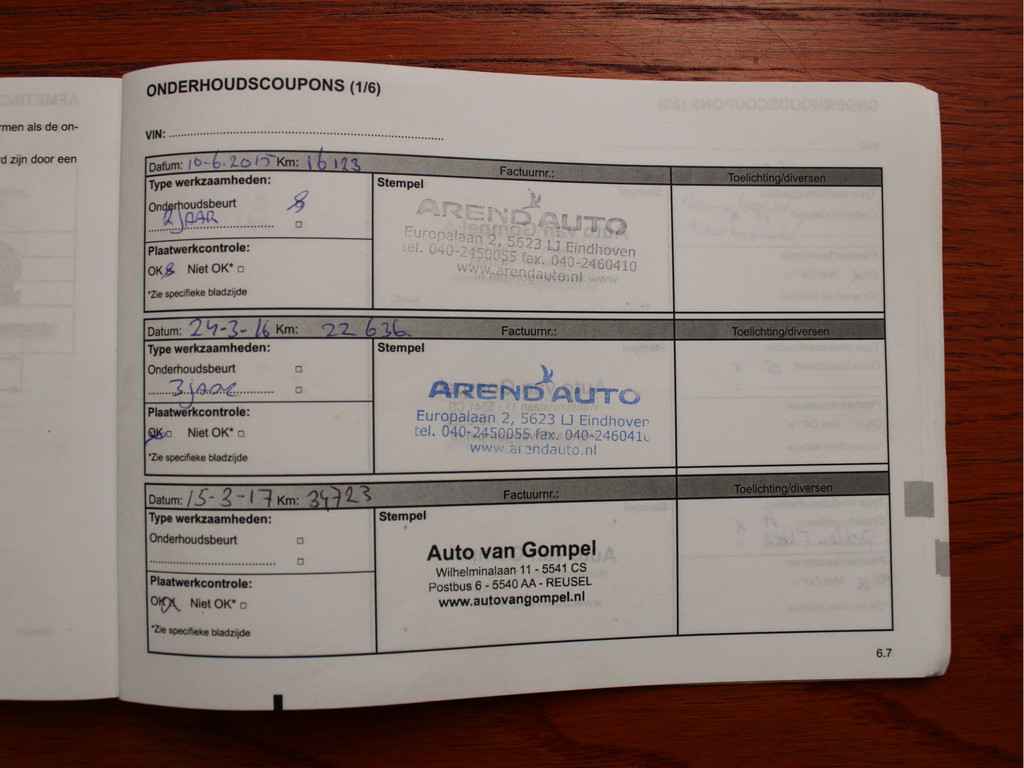 rmen als de on-
d zijn door een
ONDERHOUDSCOUPONS (1/6)
VIN:
Datum: 10-6-2015 Km: 16123 Factuurnr.: Toelichting/diversen
Type werkzaamheden: Stempel
Onderhoudsbeurt
2 JAAR
Plaatwerkcontrole:
OK Niet OK* □
*Zie specifieke bladzijde
AREND AUTO
Europalaan 2, 5623 LJ Eindhoven
tel. 040-2450055 fax. 040-2460410
www.arendauto.nl
Datum: 24-3-16 Km: 22 636 Factuurnr.: Toelichting/diversen
Type werkzaamheden: Stempel
Onderhoudsbeurt □
3 JAAR □
Plaatwerkcontrole:
OK □ Niet OK* □
*Zie specifieke bladzijde
AREND AUTO
Europalaan 2, 5623 LJ Eindhoven
tel. 040-2450055 fax. 040-2460410
www.arendauto.nl
Datum: 15-3-17 Km: 34723 Factuurnr.: Toelichting/diversen
Type werkzaamheden: Stempel
Onderhoudsbeurt □
Plaatwerkcontrole:
OK Niet OK* □
*Zie specifieke bladzijde
Auto van Gompel
Wilhelminalaan 11 - 5541 CS
Postbus 6 - 5540 AA - REUSEL
www.autovangompel.nl
6.7